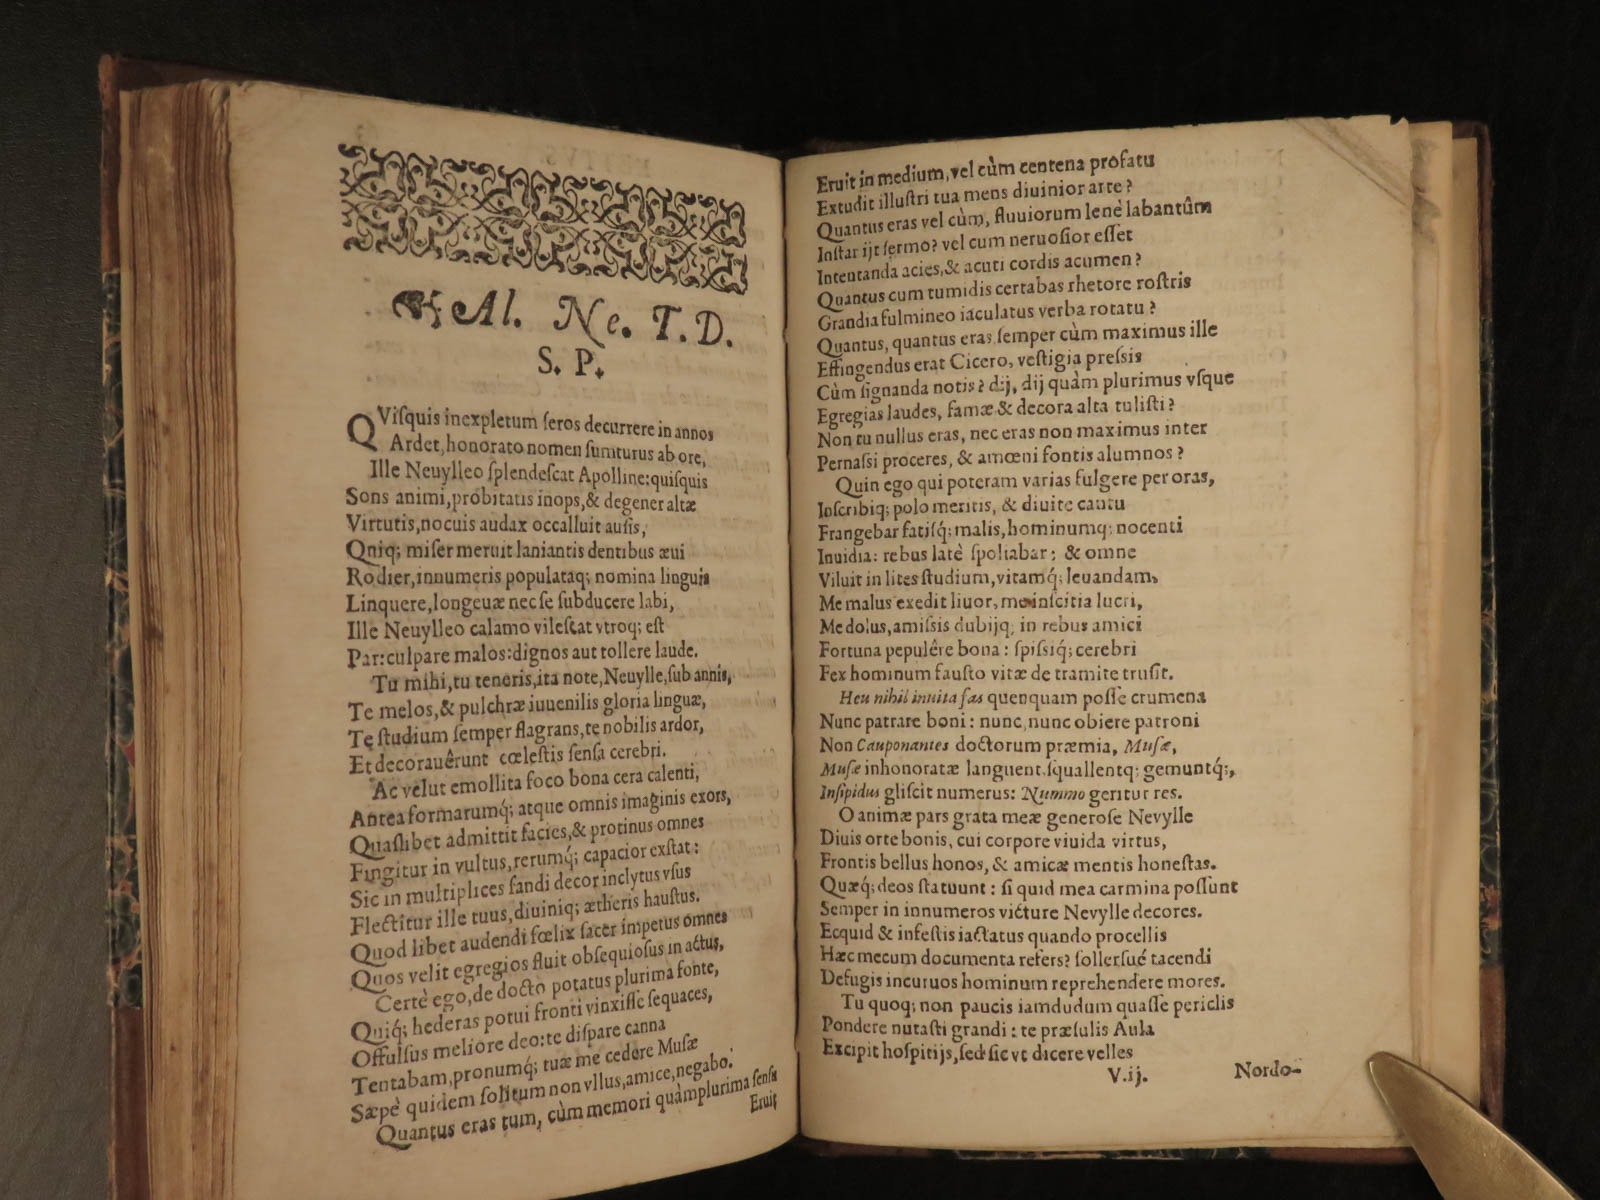 Al. Ne. T. D.
S. P.
QViſquis inexpletum ſeros decurrere in annos
Ardet, honorato nomen ſumturus ab ore,
Ille Neuylleo ſplendeſcat Apolline: quiſquis
Sons animi, probitatis inops, & degener altæ
Virtutis, nocuis audax occalluit auſis,
Quiq; miſer meruit laniantis dentibus æui
Rodier, innumeris populataq; nomina linguis
Linquere, longeuæ nec ſe ſubducere labi,
Ille Neuylleo calamo vileſcat vtroq; eſt
Par: culpare malos: dignos aut tollere laude.
Tu mihi, tu teneris, ita note, Neuylle, ſub annis,
Te melos, & pulchræ iuuenilis gloria linguæ,
Te ſtudium ſemper flagrans, te nobilis ardor,
Et decorauêrunt cœleſtis ſenſa cerebri.
Ac velut emollita foco bona cera calenti,
Antea formarumq́; atque omnis imaginis exors,
Quaſlibet admittit facies, & protinus omnes
Fingitur in vultus, rerumq́; capacior exſtat:
Sic in multiplices fandi decor inclytus vſus
Flectitur ille tuus, diuiniq; ætheris hauſtus.
Quod libet audendi fœlix ſacer impetus omnes
Quos velit egregios fluit obſequioſus in actus,
Certè ego, de docto potatus plurima fonte,
Quiq́; hederas potui fronti vinxiſſe ſequaces,
Offulſus meliore deo: te diſpare canna
Tentabam, pronumq́; tuæ me cedere Muſæ
Sæpè quidem ſolitum non vllus, amice, negabo.
Quantus eras tum, cùm memori quàmplurima ſenſu
Eruit
Eruit in medium, vel cùm centena profatu
Extudit illuſtri tua mens diuinior arte?
Quantus eras vel cùm, fluuiorum lenè labantûm
Inſtar ijt ſermo? vel cum neruoſior eſſet
Intentanda acies, & acuti cordis acumen?
Quantus cum tumidis certabas rhetore roſtris
Grandia fulmineo iaculatus verba rotatu?
Quantus, quantus eras ſemper cùm maximus ille
Effingendus erat Cicero, veſtigia preſsis
Cùm ſignanda notis? dij, dij quàm plurimus vſque
Egregias laudes, famæ & decora alta tuliſti?
Non tu nullus eras, nec eras non maximus inter
Pernaſsi proceres, & amœni fontis alumnos?
Quin ego qui poteram varias fulgere per oras,
Inſcribiq; polo meritis, & diuite cantu
Frangebar fatiſq́; malis, hominumq; nocenti
Inuidia: rebus latè ſpoliabar: & omne
Viluit in lites ſtudium, vitamq́; leuandam,
Me malus exedit liuor, me inſcitia lucri,
Me dolus, amiſsis dubijq, in rebus amici
Fortuna pepulêre bona: ſpiſsiq; cerebri
Fex hominum fauſto vitæ de tramite truſit.
Heu nihil inuita fas quenquam poſſe crumena
Nunc patrare boni: nunc, nunc obiere patroni
Non Cauponantes doctorum præmia, Muſæ,
Muſæ inhonoratæ languent ſquallentq; gemuntq́;,
Inſipidus gliſcit numerus: Nummo geritur res.
O animæ pars grata meæ generoſe Nevylle
Diuis orte bonis, cui corpore viuida virtus,
Frontis bellus honos, & amicæ mentis honeſtas.
Quæq́; deos ſtatuunt: ſi quid mea carmina poſſunt
Semper in innumeros victure Nevylle decores.
Ecquid & infeſtis iactatus quando procellis
Hæc mecum documenta refers? ſollerſué tacendi
Defugis incuruos hominum reprehendere mores.
Tu quoq; non paucis iamdudum quaſſe periclis
Pondere nutaſti grandi: te præſulis Aula
Excipit hoſpitijs, ſed ſic vt dicere velles
V.ij.
Nordo-